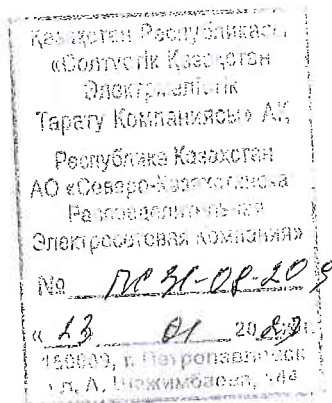 Қазақстан Республикасы
«Солтүстік Қазақстан
Электржелістік
Тарату Компаниясы» АҚ
Республика Казахстан
АО «Северо-Казахстанская
Распределительная
Электросетевая компания»
№
« 23 » 01 20
150009, г. Петропавловск
ул. А. Шажимбаева, 144